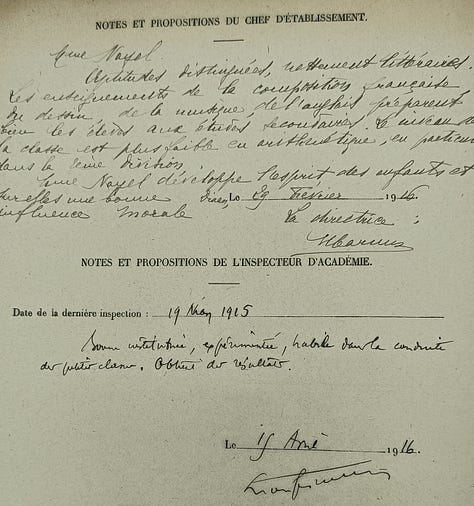 NOTES ET PROPOSITIONS DU CHEF D'ÉTABLISSEMENT.
Mme Noyel
Aptitudes distinguées, nettement littéraires.
Les enseignements de la composition française
du dessin, de la musique de l'anglais préparent
bien les élèves aux études secondaires. Le niveau de
la classe est plus faible en arithmétique, en particulier
dans la 2eme division.
Mme Noyel développe l'esprit des enfants et
sur elles une bonne
influence morale
Le 29 Février 1916
La directrice :
NOTES ET PROPOSITIONS DE L'INSPECTEUR D'ACADÉMIE.
Date de la dernière inspection : 19 Mars 1915
Bonne institutrice, expérimentée, habile dans la conduite
des petites classes. Obtient des résultats.
Le 15 Avril 1916.